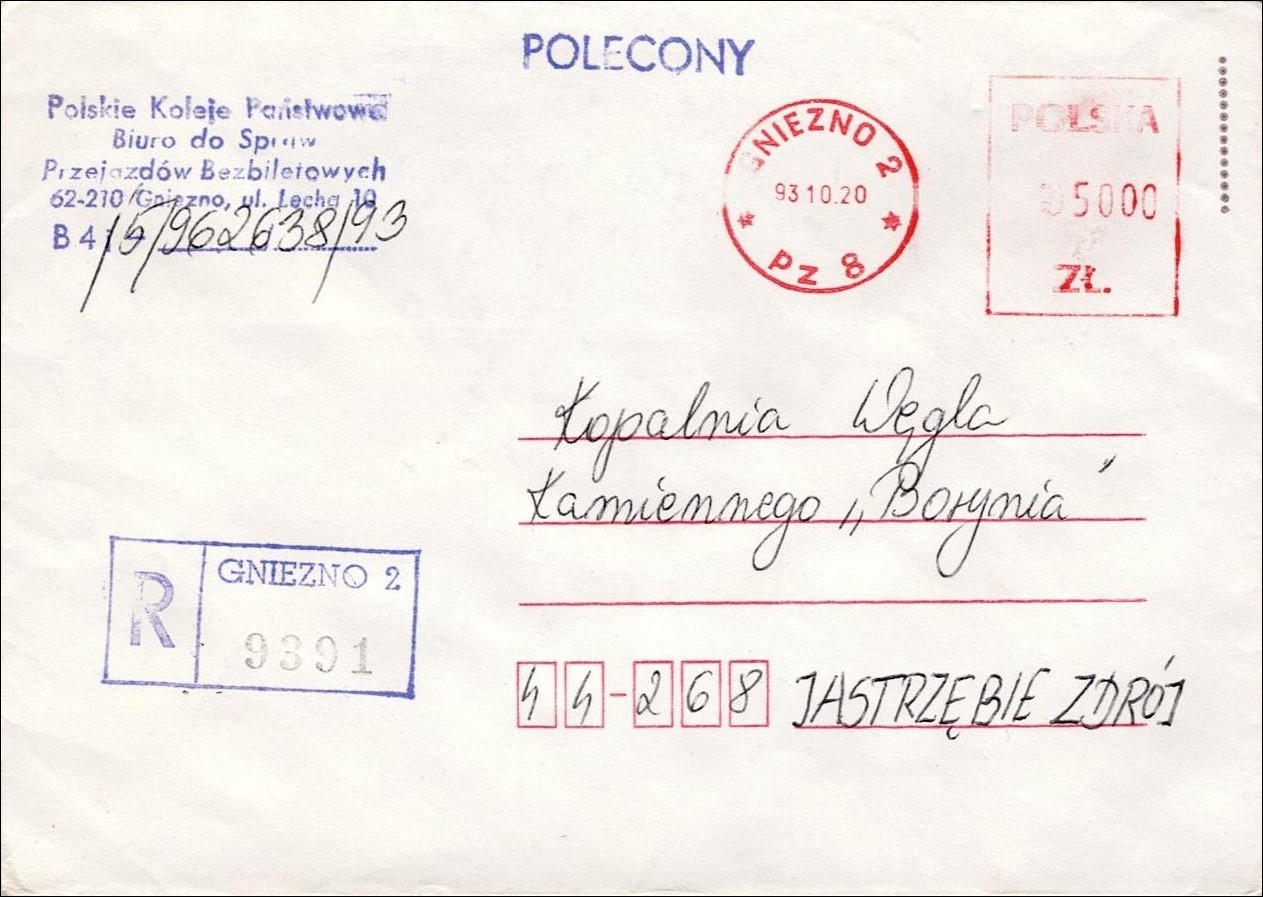 POLECONY
Polskie Koleje Państwowe
Biuro do Spraw
Przejazdów Bezbiletowych
62-210 Gniezno, ul. Lecha 10
B4 15/962638/93
GNIEZNO 2
93 10.20
PZ 8
POLSKA
05000
ZŁ.
Kopalnia Węgla
Kamiennego „Borynia"
R GNIEZNO 2
9391
44-268 JASTRZĘBIE ZDRÓJ